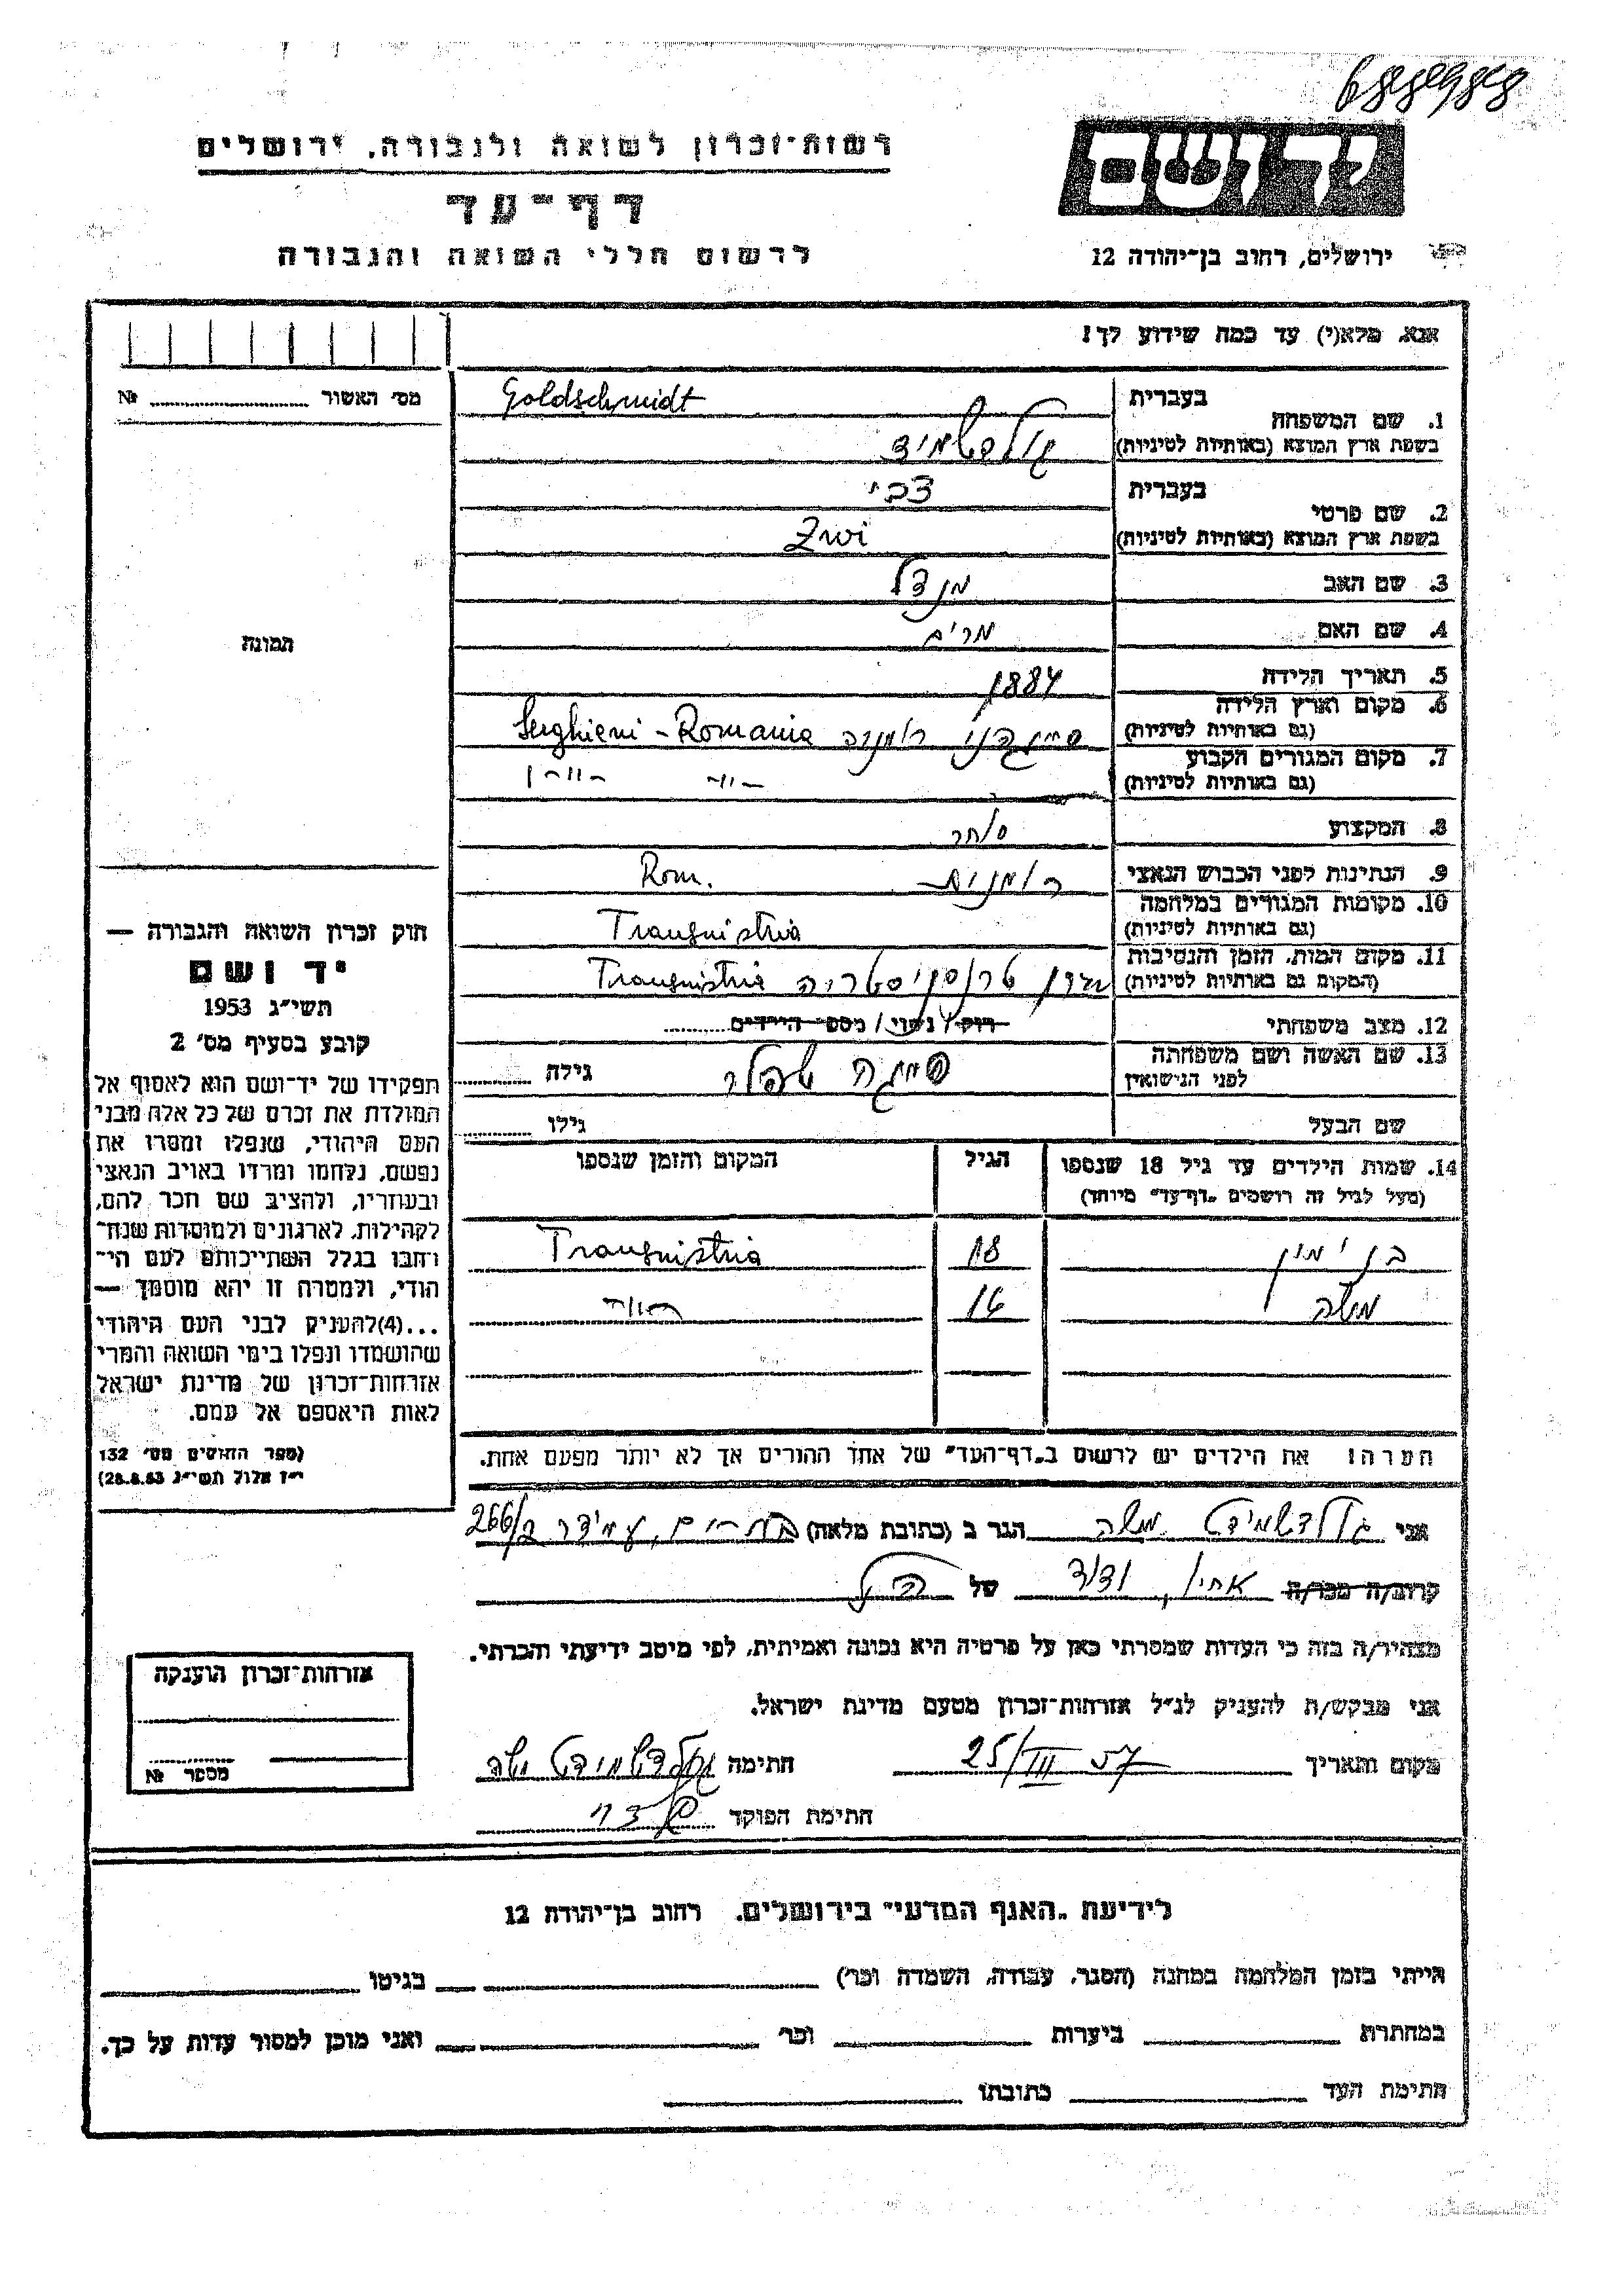 רשות־זכרון לשואה ולגבורה, ירושלים
דף־עד
לרשום חללי השואה והגבורה
יד ושם
ירושלים, רחוב בן־יהודה 12
אנא, מלא(י) עד כמה שידוע לך!
מס׳ האשור № ..........
תמונה
1. שם המשפחה
בעברית Goldschmidt
בשפת ארץ המוצא (באותיות לטיניות) גולדשמיד
2. שם פרטי
בעברית צבי
בשפת ארץ המוצא (באותיות לטיניות) Zwi
3. שם האב מנדל
4. שם האם מרים
5. תאריך הלידה 1884
6. מקום וארץ הלידה
(גם באותיות לטיניות) רומניה Serghieni - Romania
7. מקום המגורים הקבוע
(גם באותיות לטיניות) -״- -״-
8. המקצוע סוחר
9. הנתינות לפני הכבוש הנאצי רומנית Rom.
10. מקומות המגורים במלחמה
(גם באותיות לטיניות) Transnistria
11. מקום המות, הזמן והנסיבות
(המקום גם באותיות לטיניות) טרנסניסטריה Transnistria
12. מצב משפחתי רוק / נשוי / מספר הילדים ..........
13. שם האשה ושם משפחתה
לפני הנישואין גילה ..........
שם הבעל גילו ..........
14. שמות הילדים עד גיל 18 שנספו הגיל המקום והזמן שנספו
(מעל לגיל זה רושמים „דף־עד״ מיוחד)
בנימין 18 Transnistria
משה 16
הערה: את הילדים יש לרשום ב„דף־העד״ של אחד ההורים אך לא יותר מפעם אחת.
חוק זכרון השואה והגבורה —
יד ושם
תשי״ג 1953
קובע בסעיף מס׳ 2
תפקידו של יד־ושם הוא לאסוף אל
המולדת את זכרם של כל אלה מבני
העם היהודי, שנפלו ומסרו את
נפשם, נלחמו ומרדו באויב הנאצי
ובעוזריו, ולהציב שם וזכר להם,
לקהילות, לארגונים ולמוסדות שנח־
רבו בגלל השתייכותם לעם הי־
הודי, ולמטרה זו יהא מוסמך —
...(4) להעניק לבני העם היהודי
שהושמדו ונפלו בימי השואה והמרי
אזרחות־זכרון של מדינת ישראל
לאות היאספם אל עמם.
(ספר החוקים מס׳ 132
י״ז אלול תשי״ג 28.8.53)
אני גולדשמידט משה הגר ב (כתובת מלאה) בת-ים, עמידר 266/2
קרוב/ה מכר/ה אחין, ודוד של הנ״ל
מצהיר/ה בזה כי העדות שמסרתי כאן על פרטיה היא נכונה ואמיתית, לפי מיטב ידיעתי והכרתי.
אני מבקש/ת להעניק לנ״ל אזרחות־זכרון מטעם מדינת ישראל.
מקום ותאריך 25/III 57 חתימה גולדשמידט משה
חתימת הפוקד
אזרחות־זכרון הוענקה
מספר №
לידיעת „האגף המדעי״ בירושלים, רחוב בן־יהודה 12
הייתי בזמן המלחמה במחנה (הסגר, עבודה, השמדה וכו׳) __________ בגיטו __________
במחתרת __________ ביערות __________ וכו׳ __________ ואני מוכן למסור עדות על כך.
חתימת העד __________ כתובתו __________